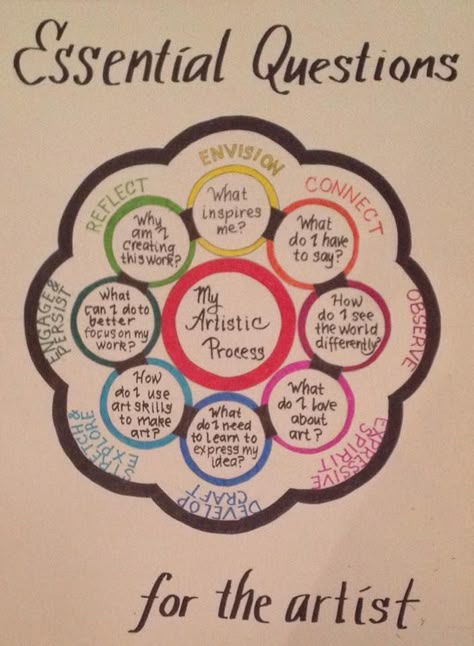 Essential Questions
ENVISION
What
inspires
me?
CONNECT
What
do I have
to say?
OBSERVE
How
do I see
the world
differently?
EXPRESSIVE
SPIRIT
What
do I love
about
art?
DEVELOP
CRAFT
What
do I need
to learn to
express my
idea?
STRETCH &
EXPLORE
How
do I use
art skills
to make
art?
ENGAGE &
PERSIST
What
can I do to
better
focus on my
work?
REFLECT
Why
am I
creating
this work?
My
Artistic
Process
for the artist